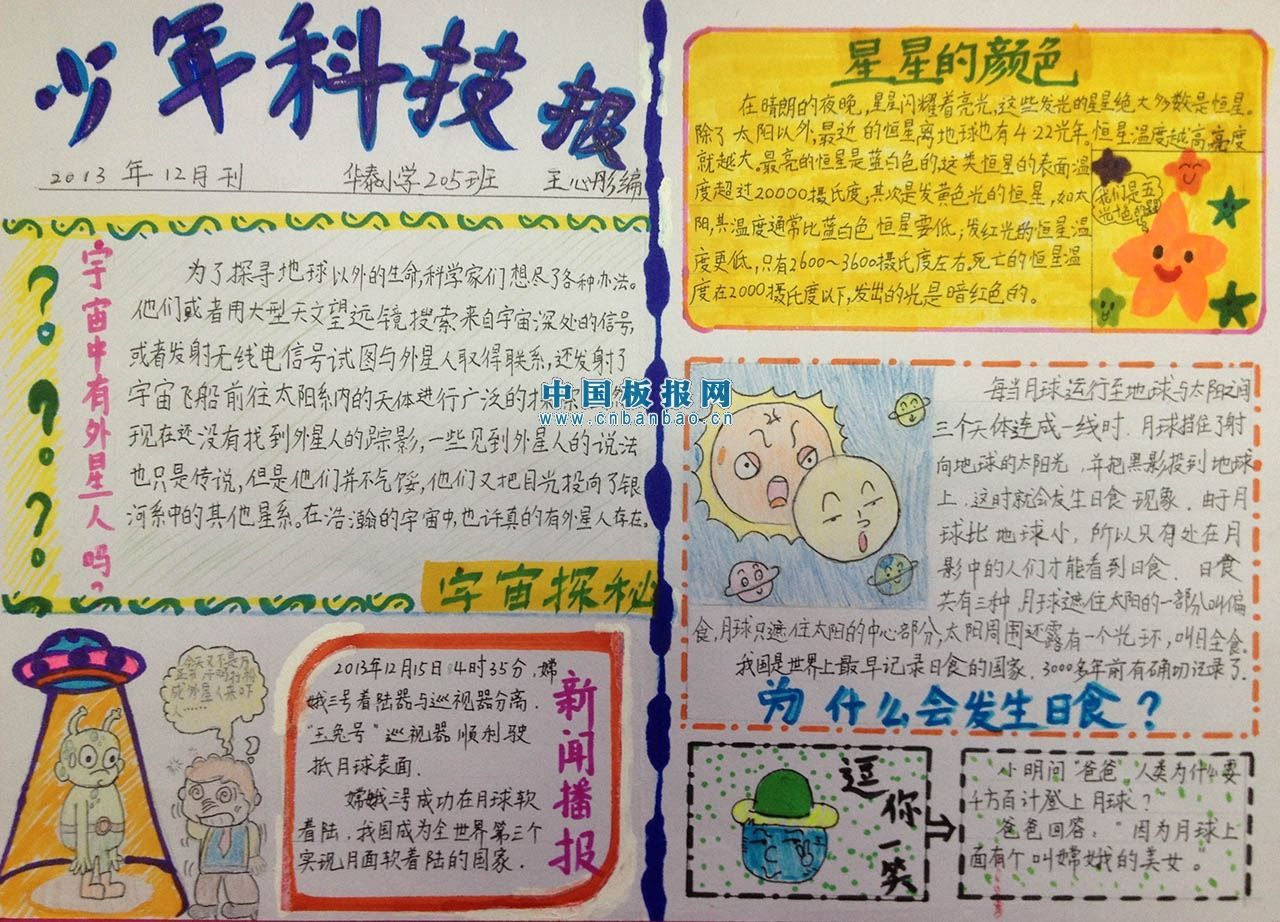 少年科技报
2013年12月刊 华泰小学205班 王心彤编
宇宙中有外星人吗?
为了探寻地球以外的生命,科学家们想尽了各种办法。
他们或者用大型天文望远镜搜索来自宇宙深处的信号,
或者发射无线电信号试图与外星人取得联系,还发射了
宇宙飞船前往太阳系内的天体进行广泛的
现在还没有找到外星人的踪影,一些见到外星人的说法
也只是传说,但是他们并不气馁,他们又把目光投向了银
河系中的其他星系。在浩瀚的宇宙中,也许真的有外星人存在。
宇宙探秘
新闻播报
2013年12月15日4时35分,嫦
娥三号着陆器与巡视器分离.
"玉兔号"巡视器顺利驶
抵月球表面.
嫦娥三号成功在月球软
着陆.我国成为全世界第三个
实现月面软着陆的国家.
星星的颜色
在晴朗的夜晚,星星闪耀着亮光,这些发光的星星绝大多数是恒星。
除了太阳以外,最近的恒星离地球也有4.22光年。恒星温度越高,亮度
就越大。最亮的恒星是蓝白色的,这类恒星的表面温
度超过20000摄氏度,其次是发黄色光的恒星,如太
阳,其温度通常比蓝白色恒星要低;发红光的恒星温
度更低,只有2600~3600摄氏度左右。死亡的恒星温
度在2000摄氏度以下,发出的光是暗红色的。
我们是五
光十色的星星
中国板报网
www.cnbanbao.cn
每当月球运行至地球与太阳之间
三个天体连成一线时.月球挡住了射
向地球的太阳光,并把黑影投到地球
上.这时就会发生日食现象.由于月
球比地球小,所以只有处在月
影中的人们才能看到日食.日食
共有三种.月球遮住太阳的一部分叫偏
食,月球只遮住太阳的中心部分,太阳周围还露有一个光环,叫日全食.
我国是世界上最早记录日食的国家.3000多年前有确切记录了.
为什么会发生日食?
逗你一笑
小明问"爸爸,人类为什么要
千方百计登上月球?
爸爸回答:"因为月球上
面有个叫嫦娥的美女。"